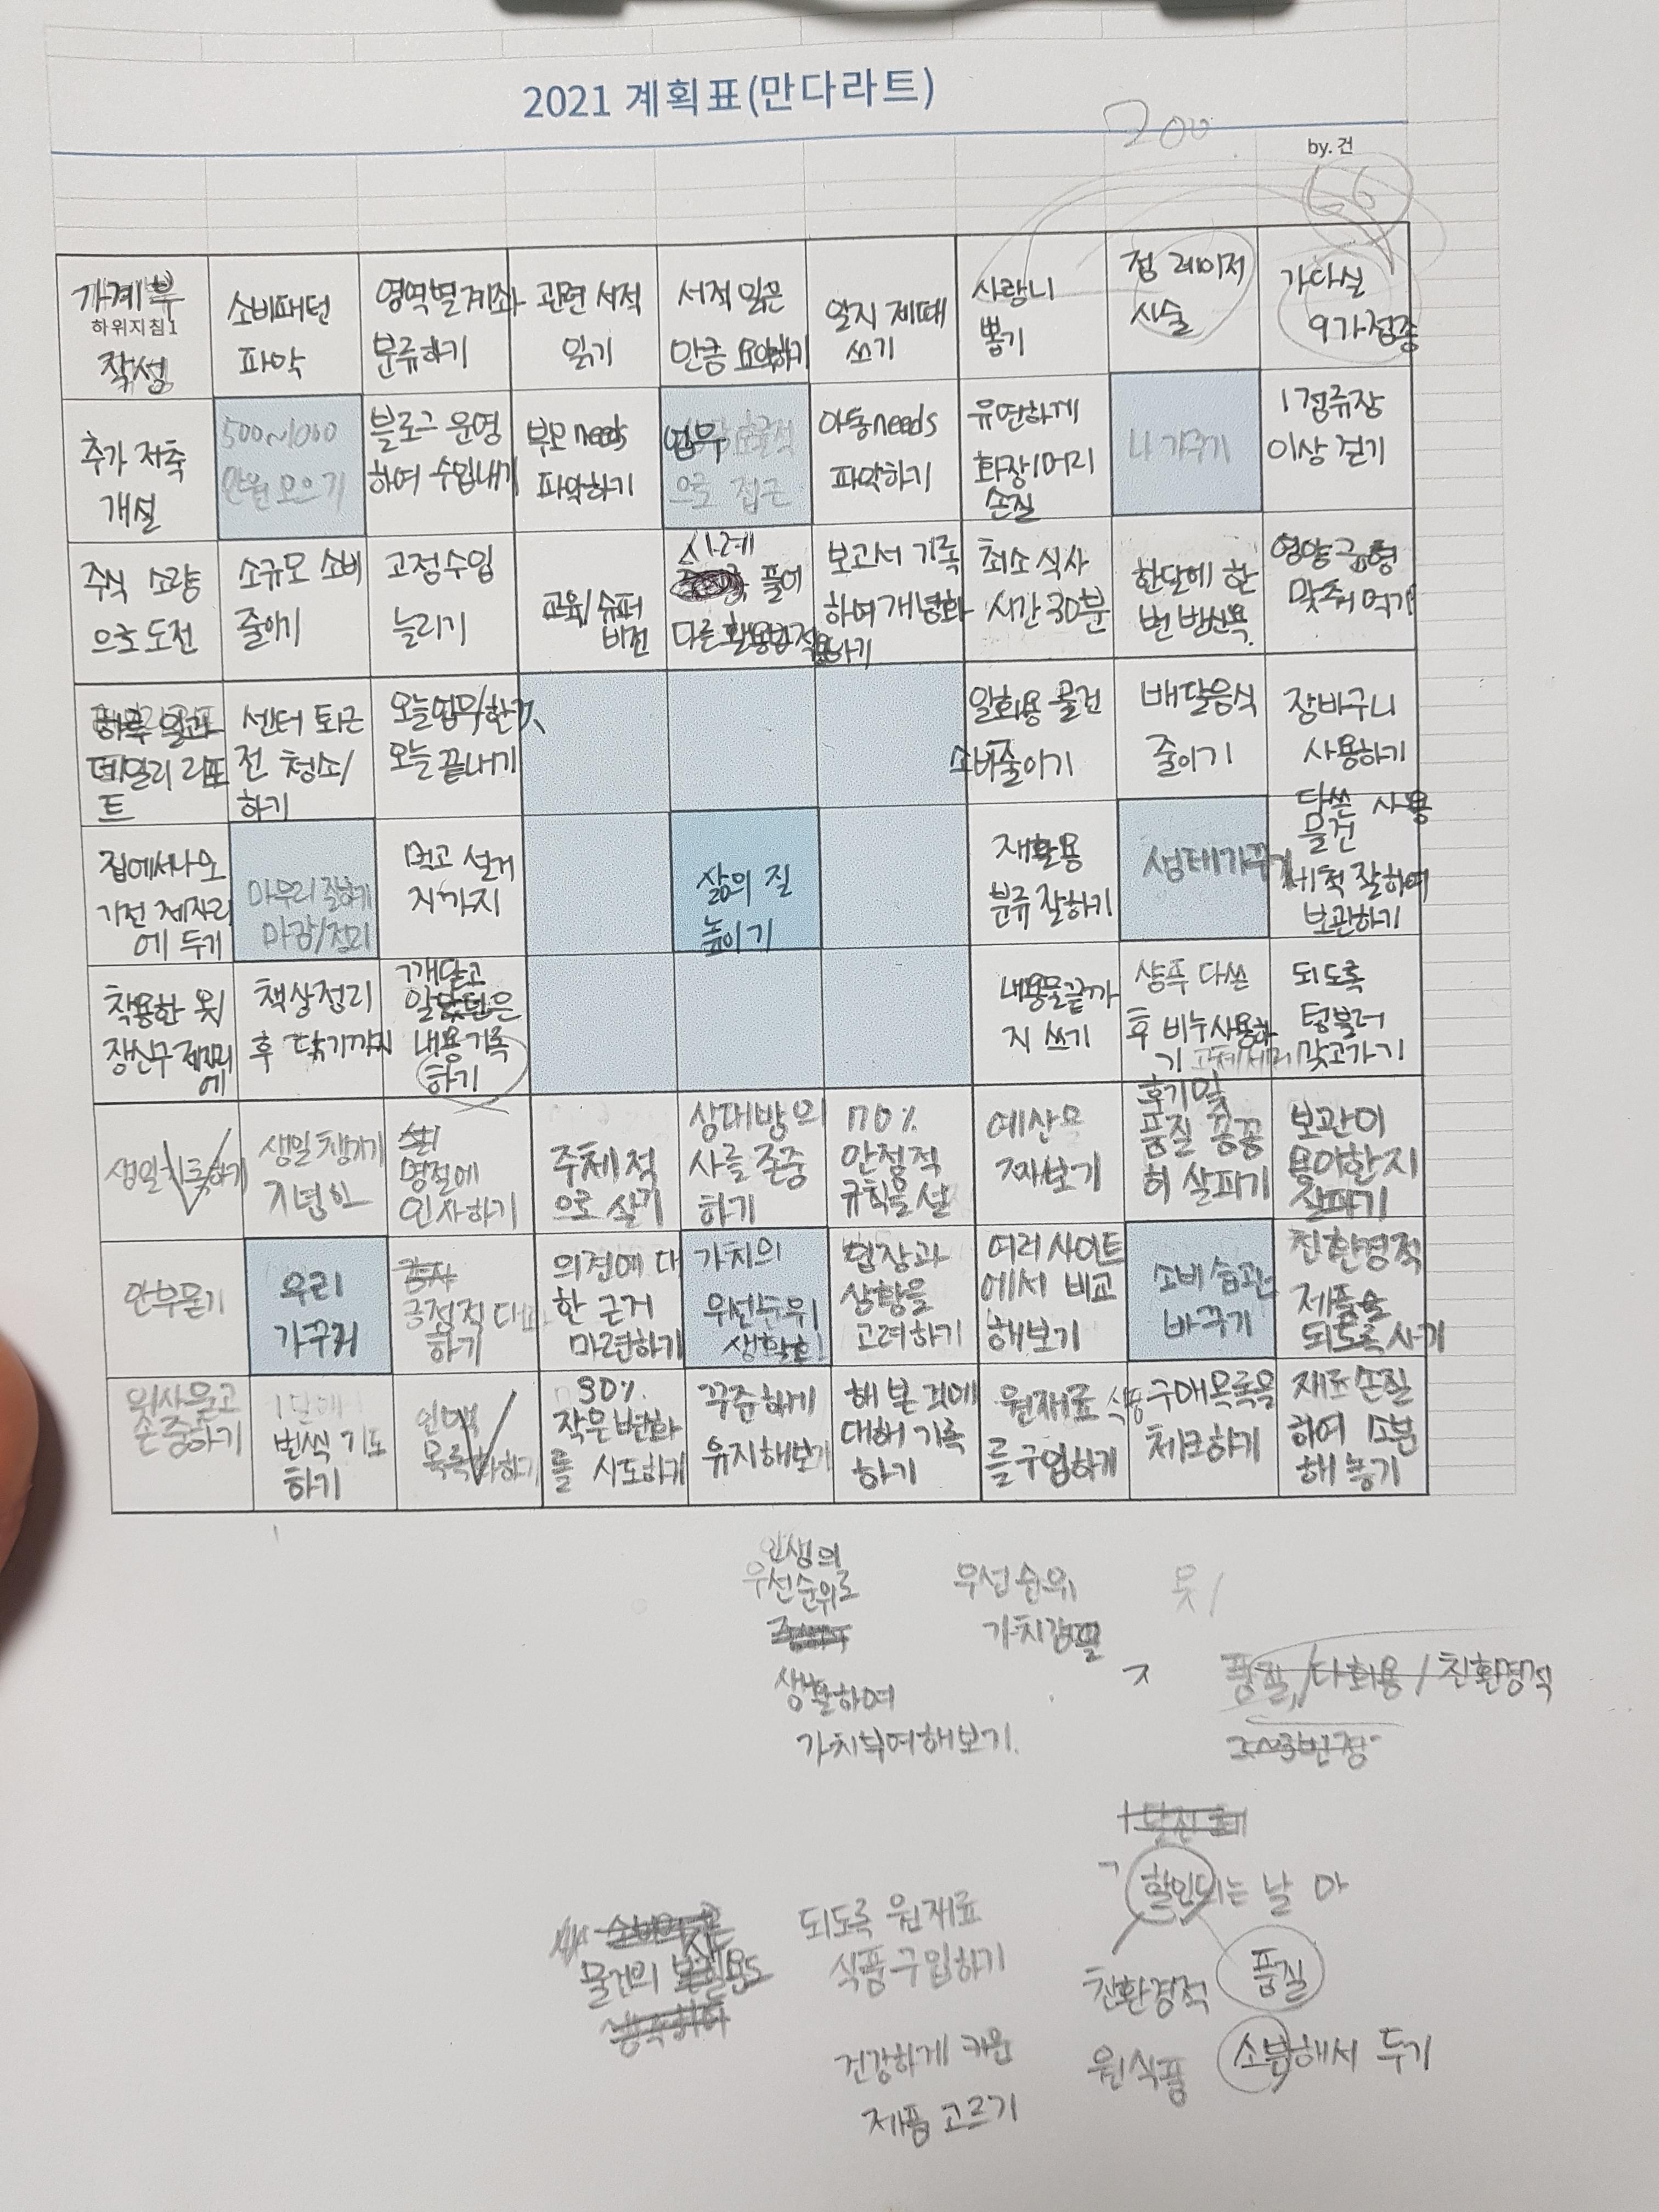 2021 계획표(만다라트)
200
by. 건
66
가계부
하위지침1
작성
소비패턴
파악
영역별계좌
분류하기
관련 서적
읽기
서적 읽은
만큼 요약하기
일지 제때
쓰기
사랑니
뽑기
점 레이저
시술
가다실
9가접종
추가 저축
개설
500~1000
만원 모으기
블로그 운영
하여 수입내기
부모 needs
파악하기
업무
으로 접근
아동needs
파악하기
유연하게
화장/머리
손질
나 가꾸기
1정류장
이상 걷기
주식 소량
으로 도전
소규모 소비
줄이기
고정수입
늘리기
교육/슈퍼
비전
사례
풀어
다른 활용법적용
보고서 기록
하여 개념화
하기
최소 식사
시간 30분
한달에 한
번 반신욕
영양균형
맞춰 먹기
하루 일과
데일리 리포
트
센터 퇴근
전 청소/
하기
오늘업무/한것
오늘 끝내기
일회용 물건
소비줄이기
배달음식
줄이기
장바구니
사용하기
집에서나오
기전 제자리
에 두기
마무리 잘하기
마감/정리
먹고 설거
지까지
삶의 질
높이기
재활용
분류 잘하기
생태가꾸기
다쓴 사용
물건
세척 잘하여
보관하기
착용한 옷/
장신구 제자리
에
책상정리
후 닦기까지
깨닫고
알았던은
내용기록
하기
내용물끝까
지 쓰기
샴푸 다쓴
후 비누사용하
기
되도록
텀블러
갖고가기
생일기록하기
생일챙기기
기념일
명절에
인사하기
주체적
으로 살기
상대방의
사를 존중
하기
70%
안정적
규칙을 설
예산으
짜보기
후기및
품질 꼼꼼
히 살피기
보관이
용이한지
살피기
안부묻기
우리
가꾸기
긍정적 대화
하기
의견에 대
한 근거
마련하기
가치의
우선순위
생활화
입장과
상황을
고려하기
여러사이트
에서 비교
해보기
소비습관
바꾸기
친환경적
제품을
되도록 사기
의사묻고
존중하기
1달에
번씩 기도
하기
인맥
목록화하기
30%
작은변화
를 시도하기
꾸준하게
유지해보기
해 본 것에
대해 기록
하기
원재료 식품
를구입하기
구매목록목
체크하기
재료손질
하여 소분
해 놓기
인생의
우선순위로
생활하여
가치부여해보기.
우선순위
가치강필
옷/
품질/다회용/친환경적
할인되는 날
친환경적
품질
원식품
소분해서 두기
물건의
되도록 원재료
식품구입하기
건강하게 키운
제품 고르기